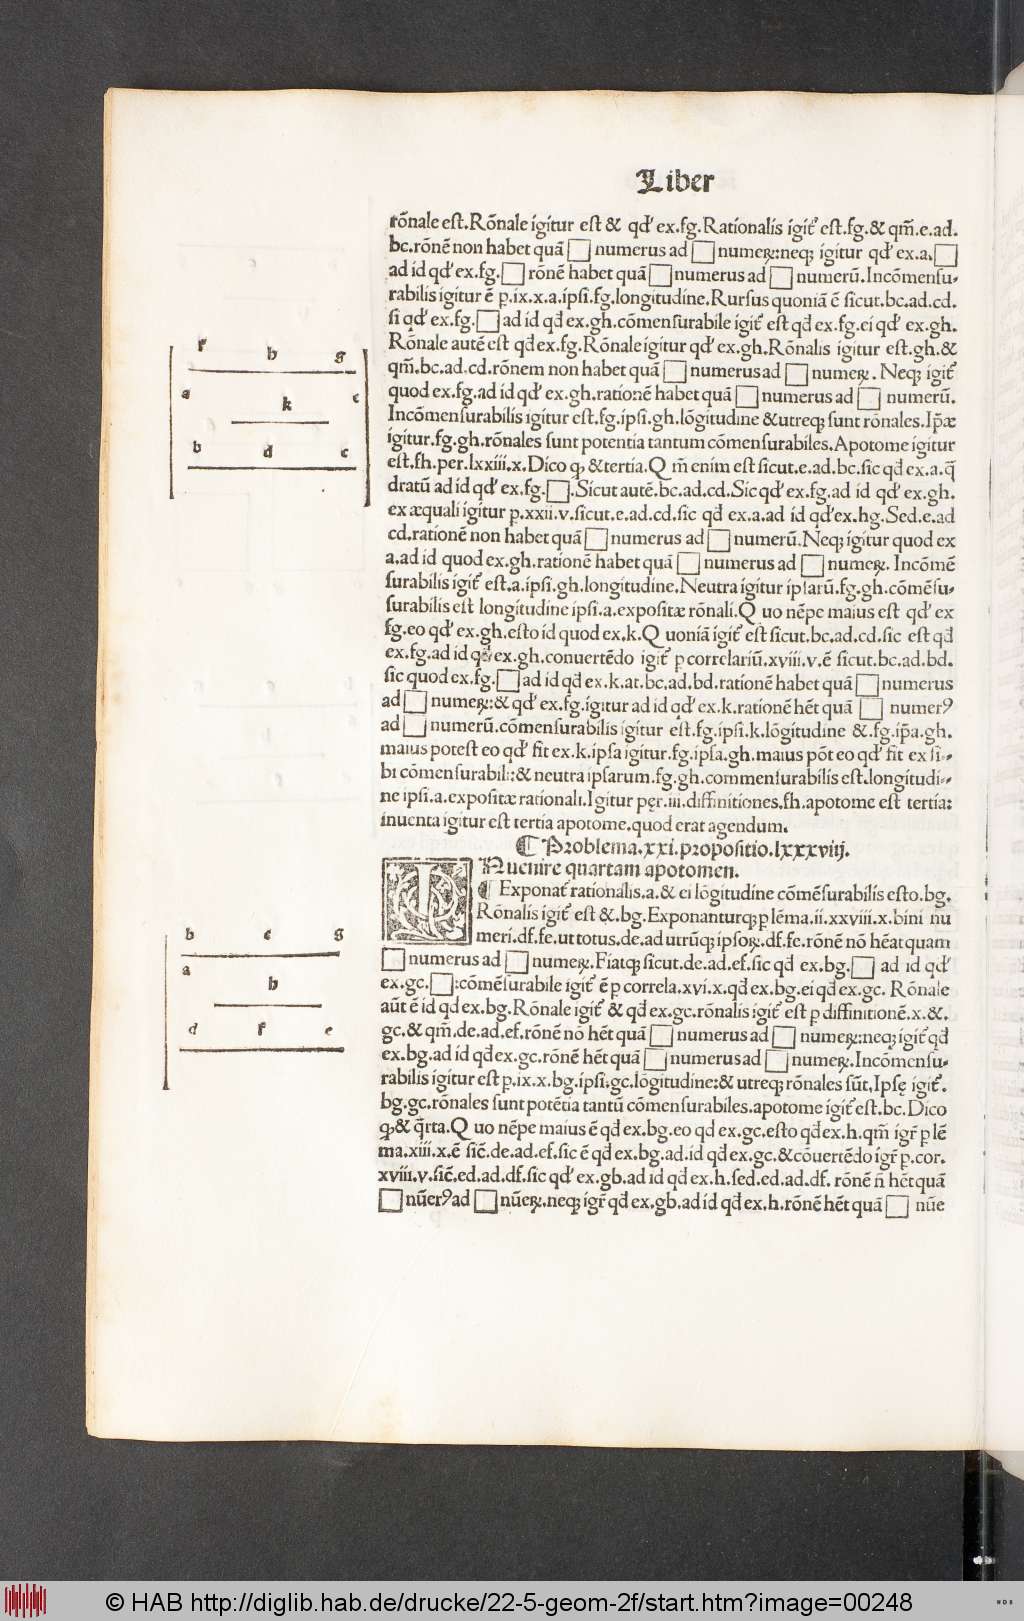 Liber
rõnale est.Rõnale igitur est & qď ex.fg.Rationalis igiť est.fg.& qm̃.e.ad.
bc.rõnẽ non habet quã □ numerus ad □ numeꝝ:neqꝫ igitur qď ex.a.□
ad id qď ex.fg.□ rõnẽ habet quã □ numerus ad □ numerũ.Incõmensu-
rabilis igitur ẽ p̱.ix.x.a.ipsi.fg.longitudine.Rursus quoniã ẽ sicut.bc.ad.cd.
si qď ex.fg.□ ad id qď ex.gh.cõmensurabile igiť est qď ex.fg.ei qď ex.gh.
Rõnale autẽ est qď ex.fg.Rõnale igitur qď ex.gh.Rõnalis igitur est.gh.&
qm̃.bc.ad.cd.rõnem non habet quã □ numerus ad □ numeꝝ. Neqꝫ igiť
quod ex.fg.ad id qď ex.gh.rationẽ habet quã □ numerus ad □ numerũ.
Incõmensurabilis igitur est.fg.ipsi.gh.lõgitudine & utreqꝫ sunt rõnales.Ip̃æ
igitur.fg.gh.rõnales sunt potentia tantum cõmensurabiles.Apotome igitur
est.fh.per.lxxiii.x.Dico ꝙ & tertia.Q m̃ enim est sicut.e.ad.bc.sic qď ex.a.q̃
dratũ ad id qď ex.fg.□.Sicut autẽ.bc.ad.cd.Sic qď ex.fg.ad id qď ex.gh.
ex æquali igitur p̱.xxii.v.sicut.e.ad.cd.sic qď ex.a.ad id qď ex.hg.Sed.e.ad
cd.rationẽ non habet quã □ numerus ad □ numerũ.Neqꝫ igitur quod ex
a.ad id quod ex.gh.rationẽ habet quã □ numerus ad □ numeꝝ. Incõmẽ
surabilis igiť est.a.ipsi.gh.longitudine.Neutra igitur ipsarũ.fg.gh.cõmẽsu-
surabilis est longitudine ipsi.a.expositæ rõnali.Q uo nẽpe maius est qď ex
fg.eo qď ex.gh.esto id quod ex.k.Q uoniã igiť est sicut.bc.ad.cd.sic est qď
ex.fg.ad id qď ex.gh.conuertẽdo igiť p̱ correlariũ.xviii.v.ẽ sicut.bc.ad.bd.
sic quod ex.fg.□ ad id qď ex.k.at.bc.ad.bd.rationẽ habet quã □ numerus
ad □ numeꝝ:& qď ex.fg.igitur ad id qď ex.k.rationẽ hẽt quã □ numerꝰ
ad □ numerũ.cõmensurabilis igitur est.fg.ipsi.k.lõgitudine & .fg.ip̃a.gh.
maius potest eo qď fit ex.k.ipsa igitur.fg.ipsa.gh.maius põt eo qď fit ex si-
bi cõmensurabili:& neutra ipsarum.fg.gh.commensurabilis est.longitudi-
ne ipsi.a.expositæ rationali.Igitur pęr.iii.diffinitiones.fh.apotome est tertia:
inuenta igitur est tertia apotome.quod erat agendum.
¶ Problema.xxi.propositio.lxxxviij.
INuenire quartam apotomen.
¶ Exponať rationalis.a.& ei lõgitudine cõmẽsurabilis esto.bg.
Rõnalis igiť est &.bg.Exponanturqꝫ p̱ lẽma.ii.xxviii.x.bini nu
meri.df.fe.ut totus.de.ad utrũqꝫ ipsoꝝ.df.fe.rõnẽ nõ hẽat quam
□ numerus ad □ numeꝝ.Fiatqꝫ sicut.de.ad.ef.sic qď ex.bg.□ ad id qď
ex.gc.□:cõmẽsurabile igiť ẽ p̱ correla.xvi.x.qď ex.bg.ei qď ex.gc. Rõnale
aũt ẽ id qď ex.bg.Rõnale igiť & qď ex.gc.rõnalis igiť est p̱ diffinitionẽ.x.&.
gc.& qm̃.de.ad.ef.rõnẽ nõ hẽt quã □ numerus ad □ numeꝝ:neqꝫ igiť qď
ex.bg.ad id qď ex.gc.rõnẽ hẽt quã □ numerus ad □ numeꝝ.Incõmensu-
rabilis igitur est p̱.ix.x.bg.ipsi.gc.lõgitudine:& utreqꝫ rõnales sũt.Ipsę igiť.
bg.gc.rõnales sunt potẽtia tantũ cõmensurabiles.apotome igiť est.bc.Dico
ꝙ & q̃rta.Q uo nẽpe maius ẽ qď ex.bg.eo qď ex.gc.esto qď ex.h.qm̃ igr̃ p̱ lẽ
ma.xiii.x.ẽ sic̃.de.ad.ef.sic ẽ qď ex.bg.ad.id qď ex.gc.& cõuertẽdo igr̃ p̱.cor.
xviii.v.sic̃.ed.ad.df.sic qď ex.gb.ad id qď ex.h.sed.ed.ad.df. rõnẽ ñ hẽt quã
□ nũerꝰ ad □ nũeꝝ.neqꝫ igr̃ qď ex.gb.ad id qď ex.h.rõnẽ hẽt quã □ nũe
f h g
a k e
b d c
b c g
a
h
d f e
© HAB http://diglib.hab.de/drucke/22-5-geom-2f/start.htm?image=00248